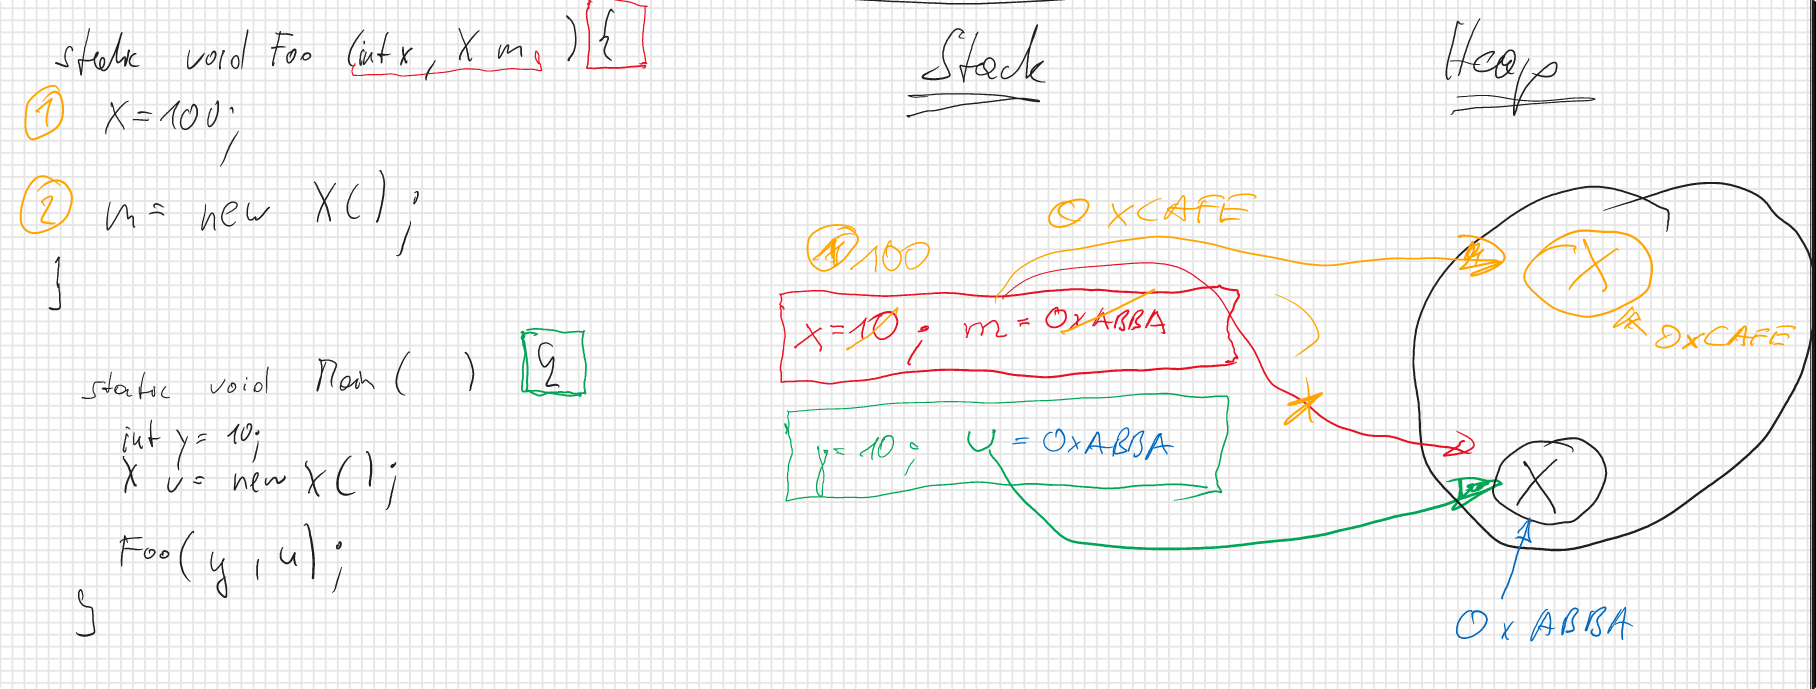 static void Foo (int x, X m) {
① x = 100;
② m = new X();
}
static void Main ( ) {
int y = 10;
X u = new X();
Foo(y, u);
}
Stack
Heap
0xCAFE
① 100
x = 10; m = 0xABBA
y = 10; u = 0xABBA
X
0xCAFE
X
0xABBA